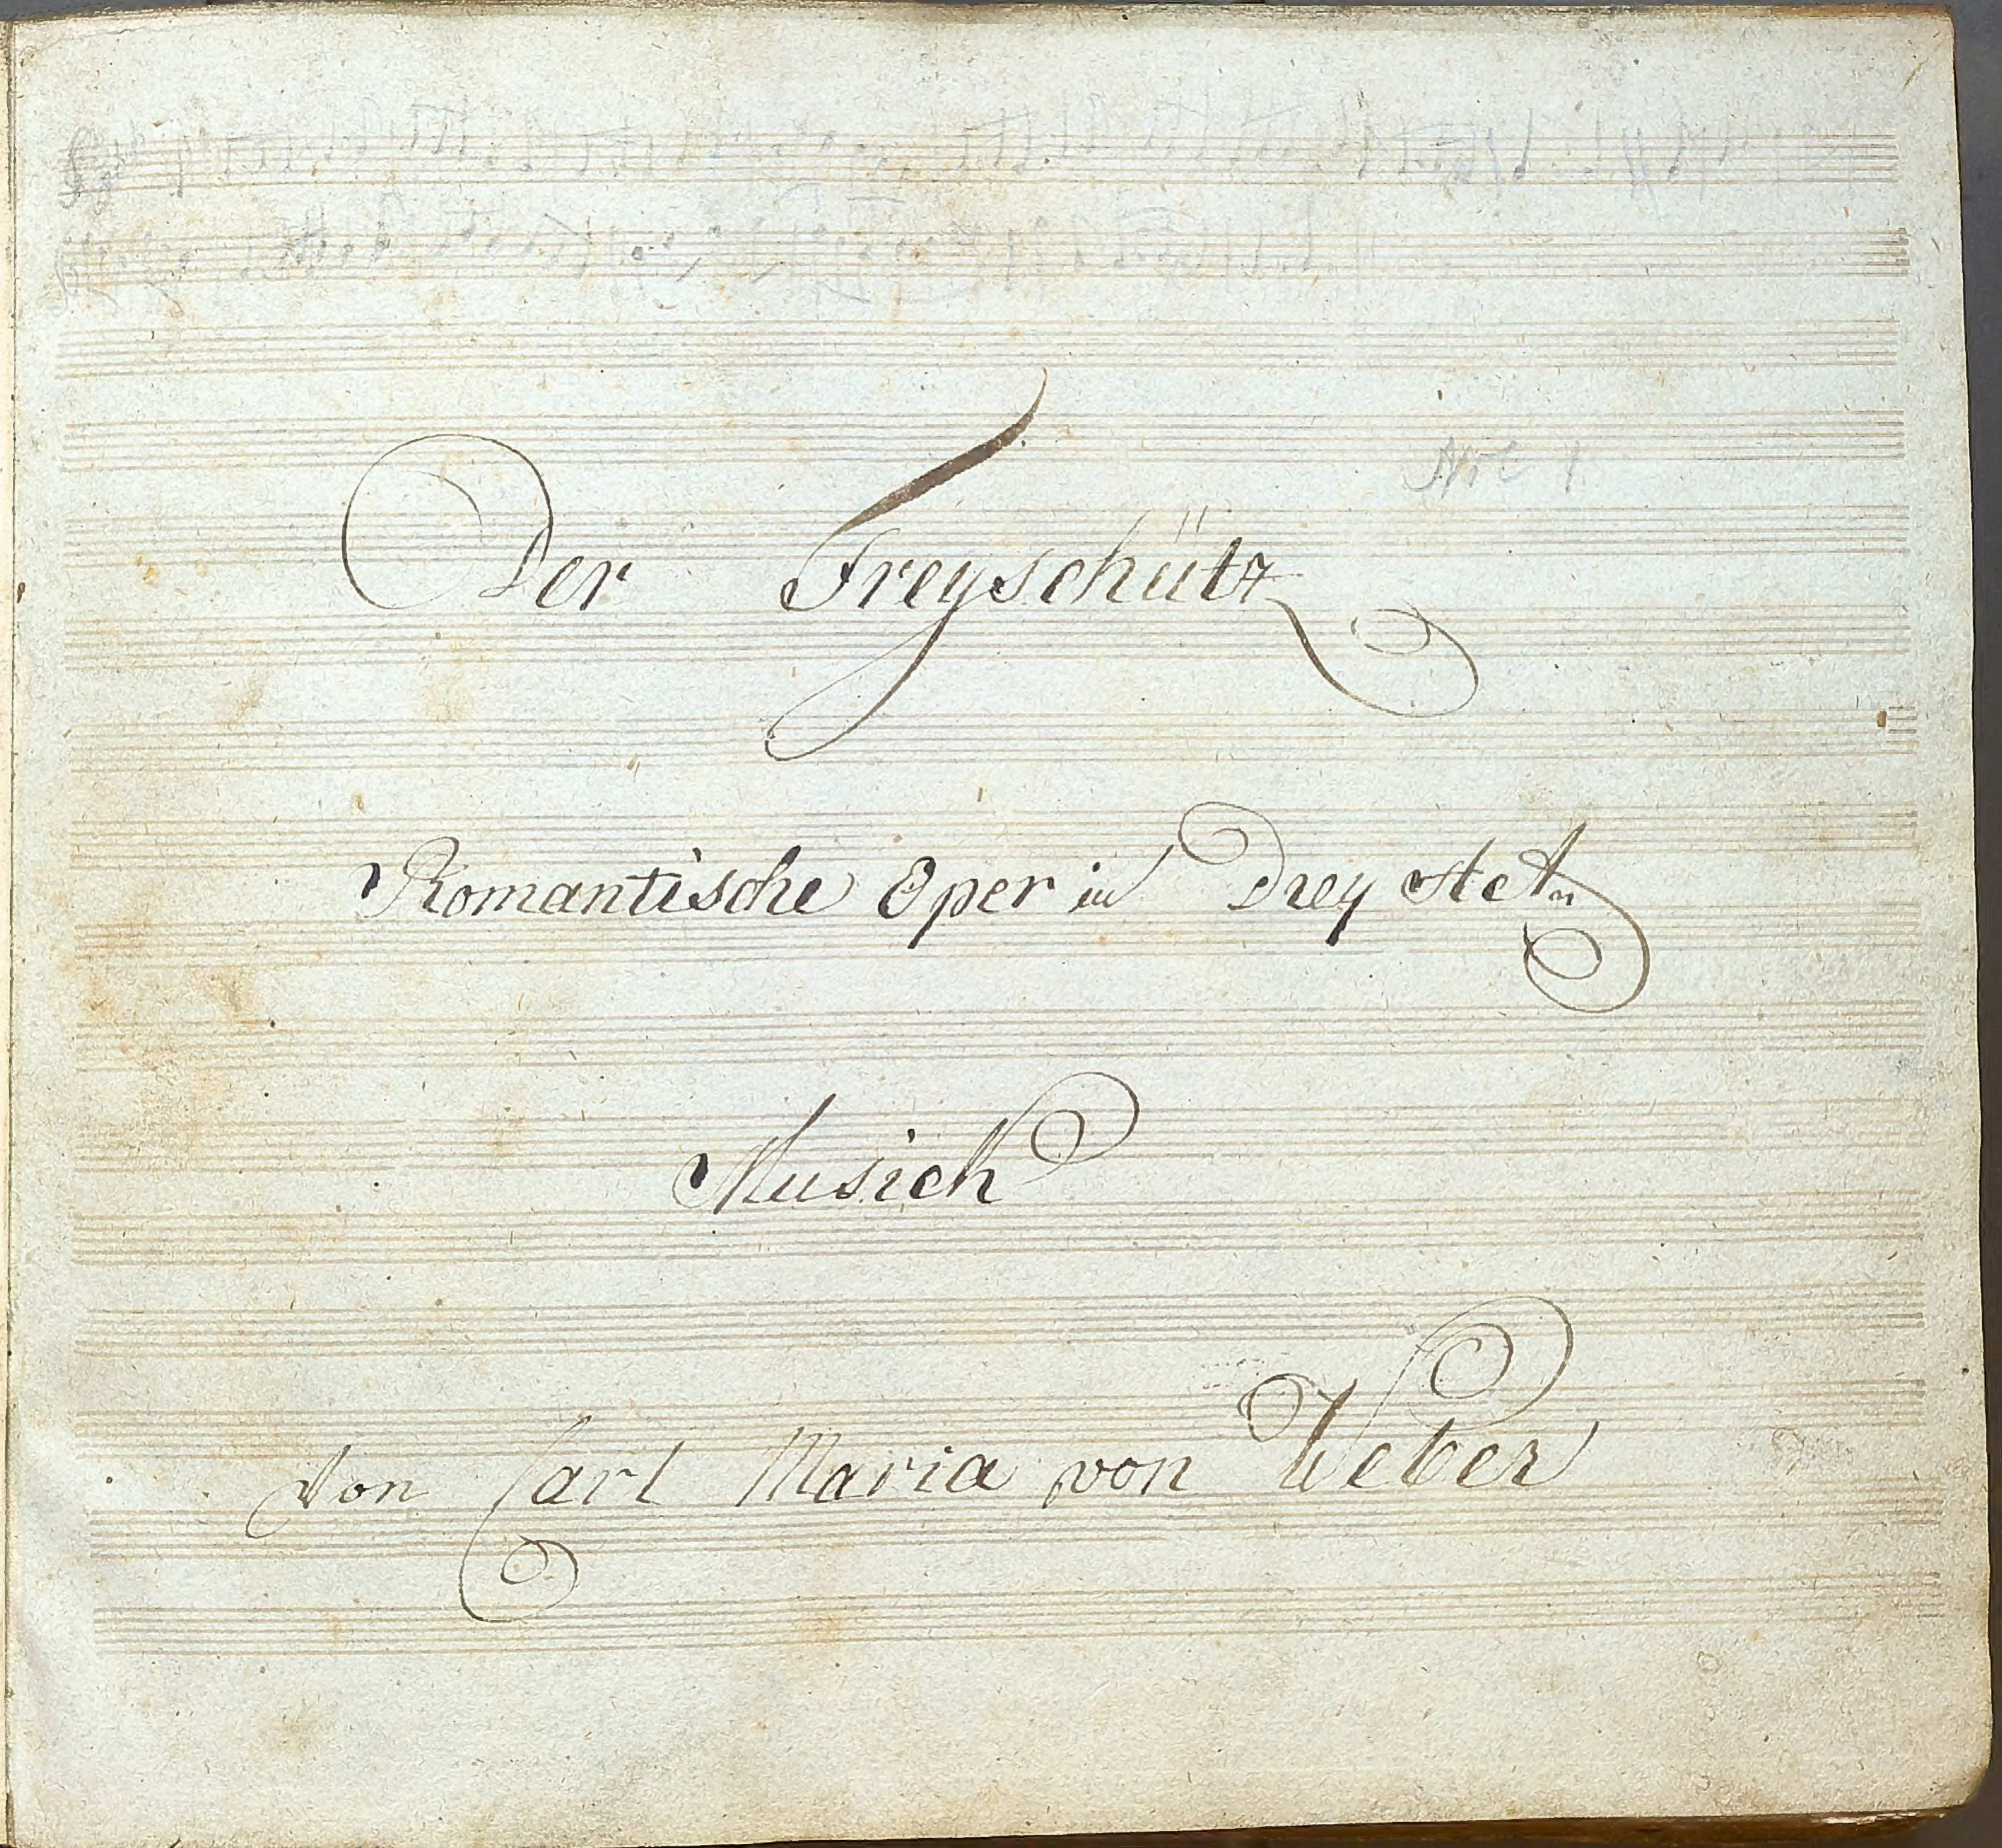 Nro 1
Der Freyschütz
Romantische Oper in Drey Acten
Musick
Von Carl Maria von Weber